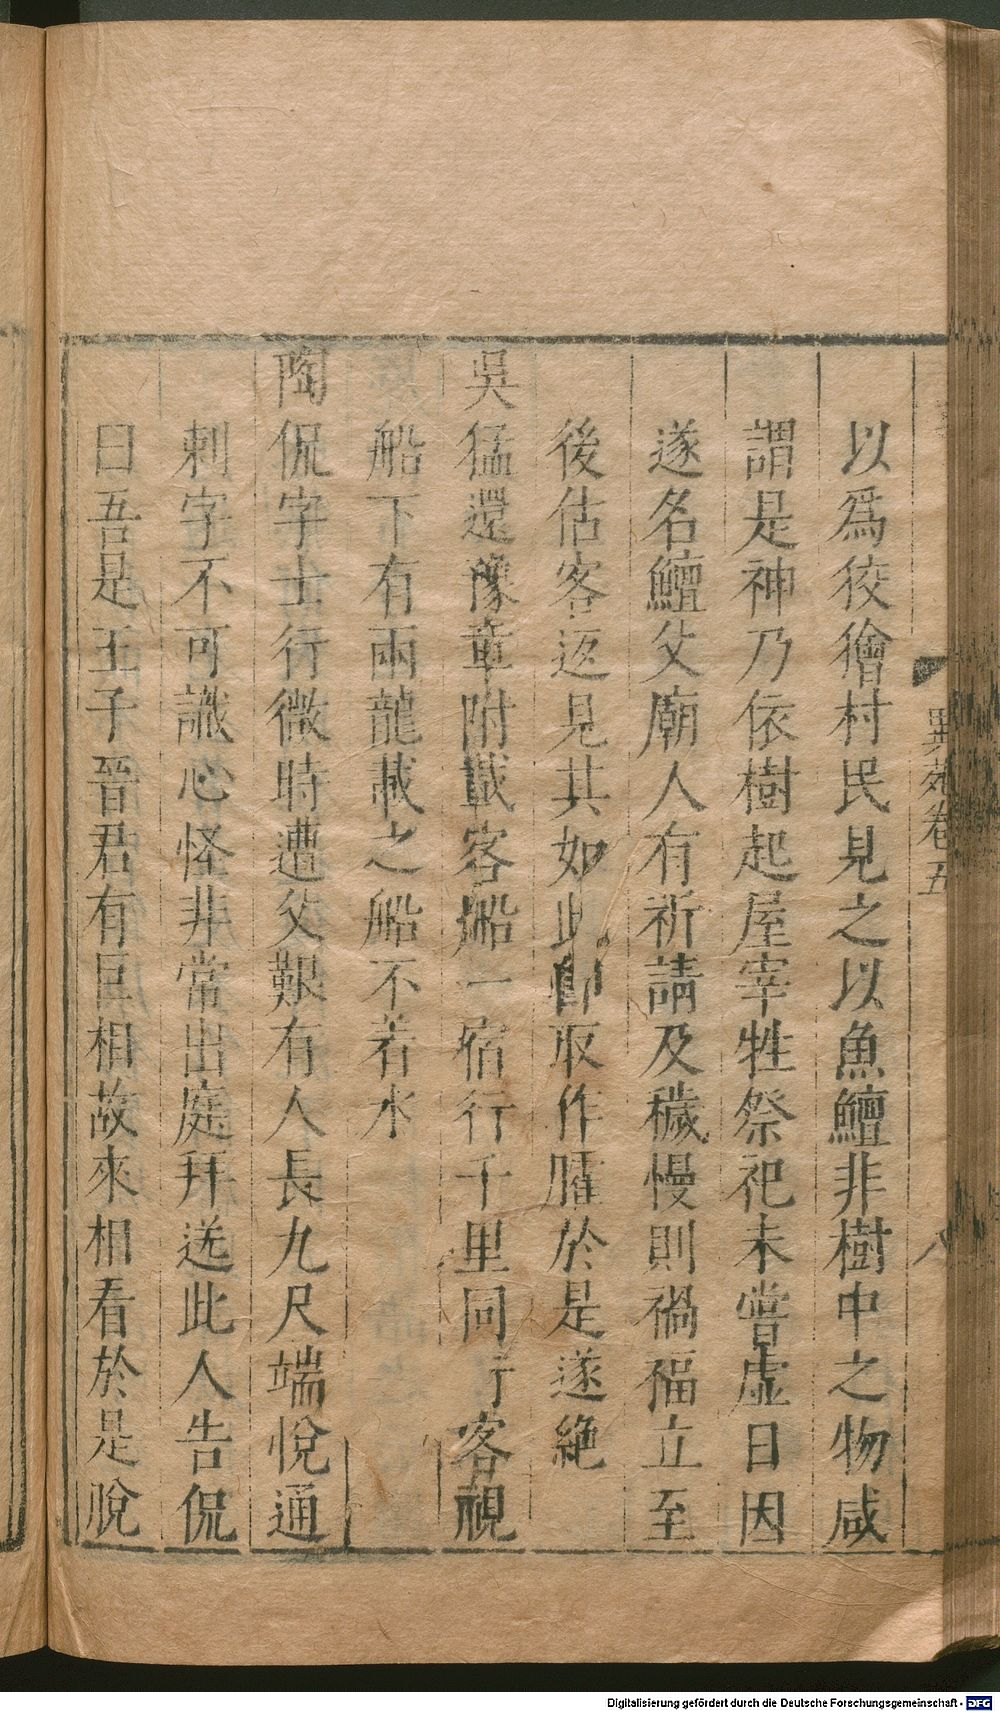 異苑卷五
八
以爲狡獪村民見之以魚鱣非樹中之物咸
謂是神乃依樹起屋宰牲祭祀未嘗虛日因
遂名鱣父廟人有祈請及穢慢則禍福立至
後估客返見其如此卽取作臛於是遂絶
吳猛還豫章附載客船一宿行千里同行客視
船下有兩龍載之船不着水
陶侃字士行微時遭父艱有人長九尺端悅通
刺字不可識心怪非常出庭拜送此人告侃
曰吾是王子晉君有巨相故來相看於是脫
Digitalisierung gefördert durch die Deutsche Forschungsgemeinschaft - DFG